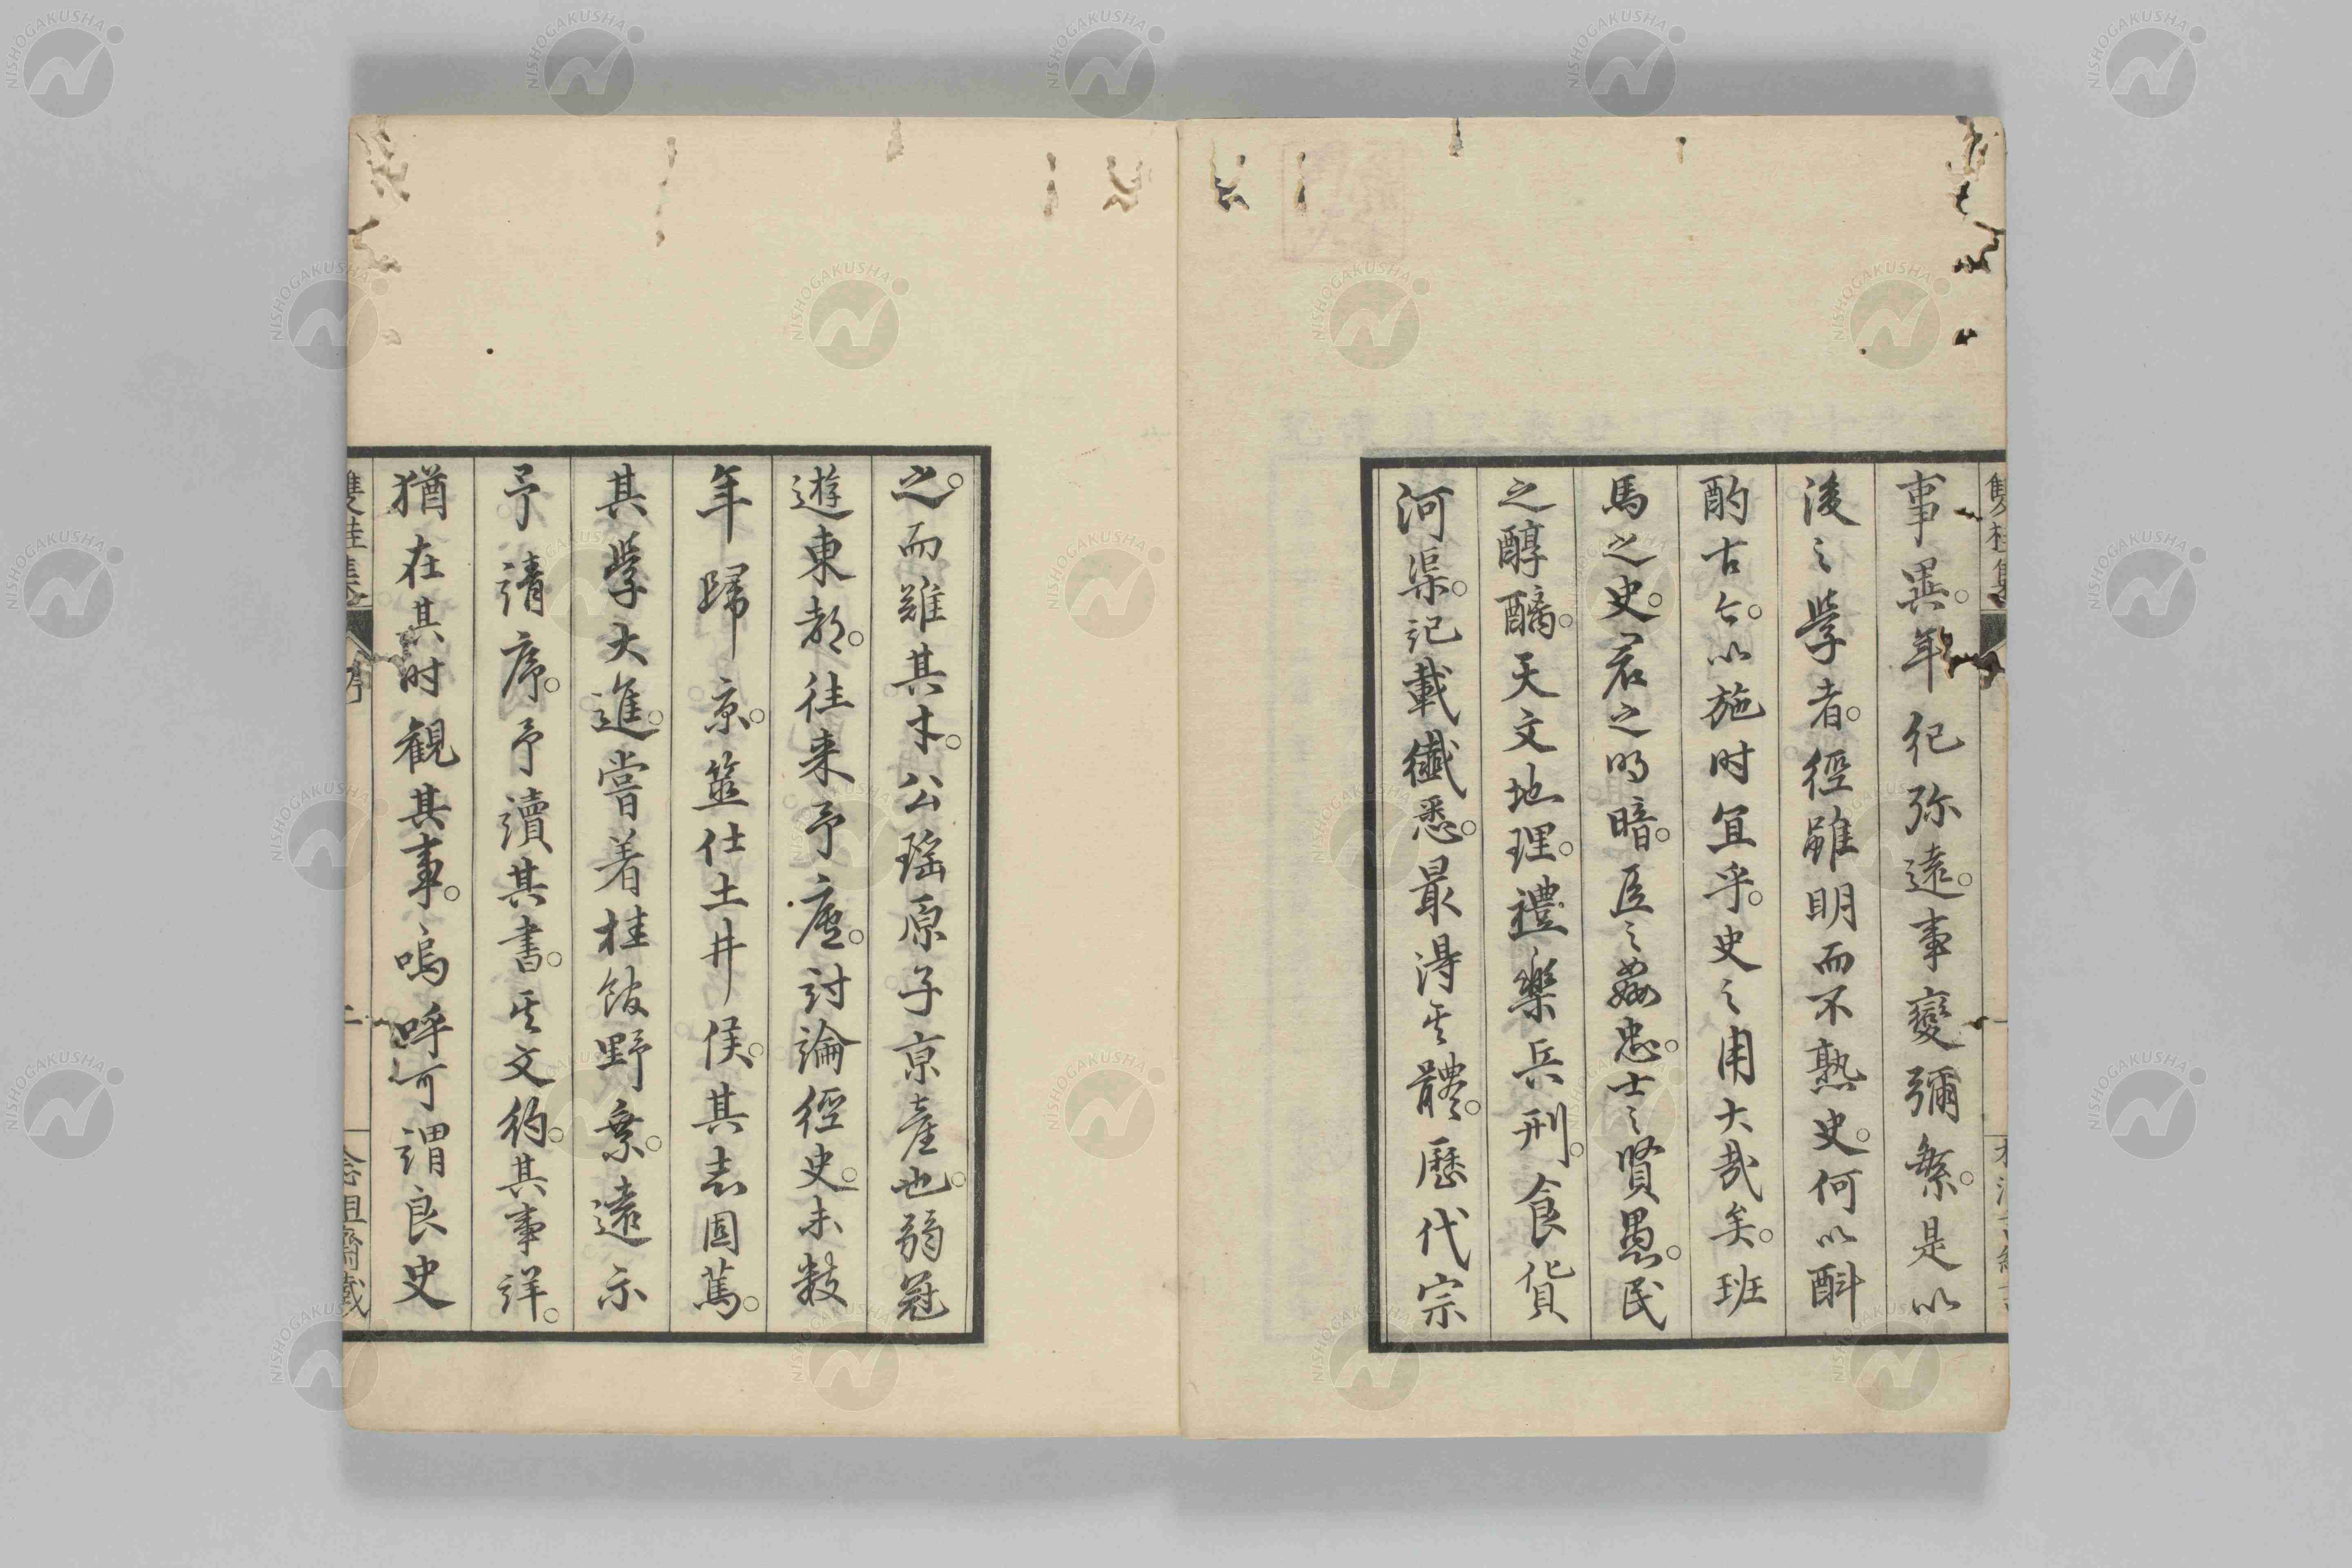 事異。年紀弥遠。事變彌繁。是以
後之學者。經雖明而不熟史。何以斟
酌古今。以施时宜乎。史之用大哉矣。班
馬之史。君之明暗。臣之姦忠。士之賢愚。民
之醇醨。天文地理。禮樂兵刑。食貨
河渠。記載纖悉。最得其體。歷代宗
之。而難其才。公瑤原子京產也。弱冠
遊東都。往来予廬。討論經史。未数
年歸京。筮仕土井侯。其志固篤。
其學大進。嘗着桂館野乘。遠示
予請序。予讀其書。其文約。其事詳。
猶在其时觀其事。嗚呼可謂良史
雙桂集
序
二
念祖齋藏
NISHOGAKUSHA